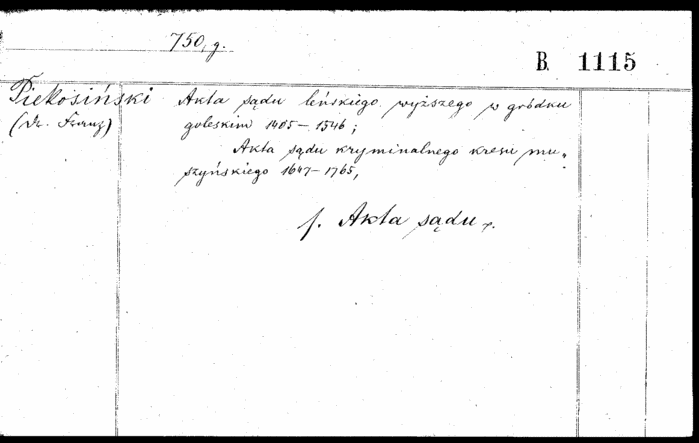 750, g.
B. 1115
Piekosiński
(Dr. Franz)
Akta sądu leńskiego wyższego w gródku
goleskim 1405–1546;
Akta sądu kryminalnego kresu mu„
szyńskiego 1647–1765,
f. Akta sądu